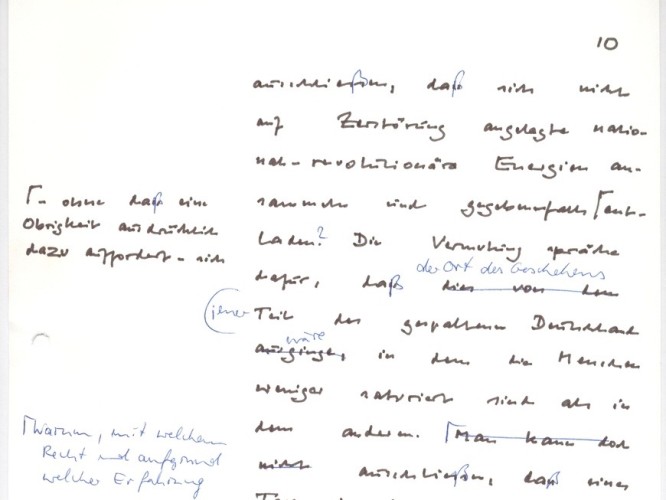 10
ausschließen, daß sich nicht
auf Zerstörung angelegte natio-
nal-revolutionäre Energien an-
sammeln und gegebenenfalls ⌈ent-
laden? Die Vermutung spräche
der Ort des Geschehens
dafür, daß dies von dem
(jener Teil des gespaltenen Deutschland
wäre
ausginge, in dem die Menschen
weniger saturiert sind als in
dem anderen. ⌈Man kann doch
nicht ausschließen, daß eines
⌈- ohne daß eine
Obrigkeit ausdrücklich
dazu auffordert - sich
⌈Warum, mit welchem
Recht und aufgrund
welcher Erfahrung